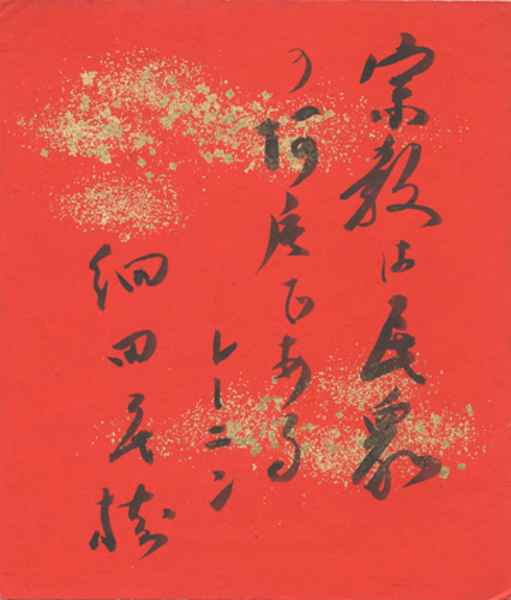 宗教は民衆
の阿片である
レーニン
細田民樹